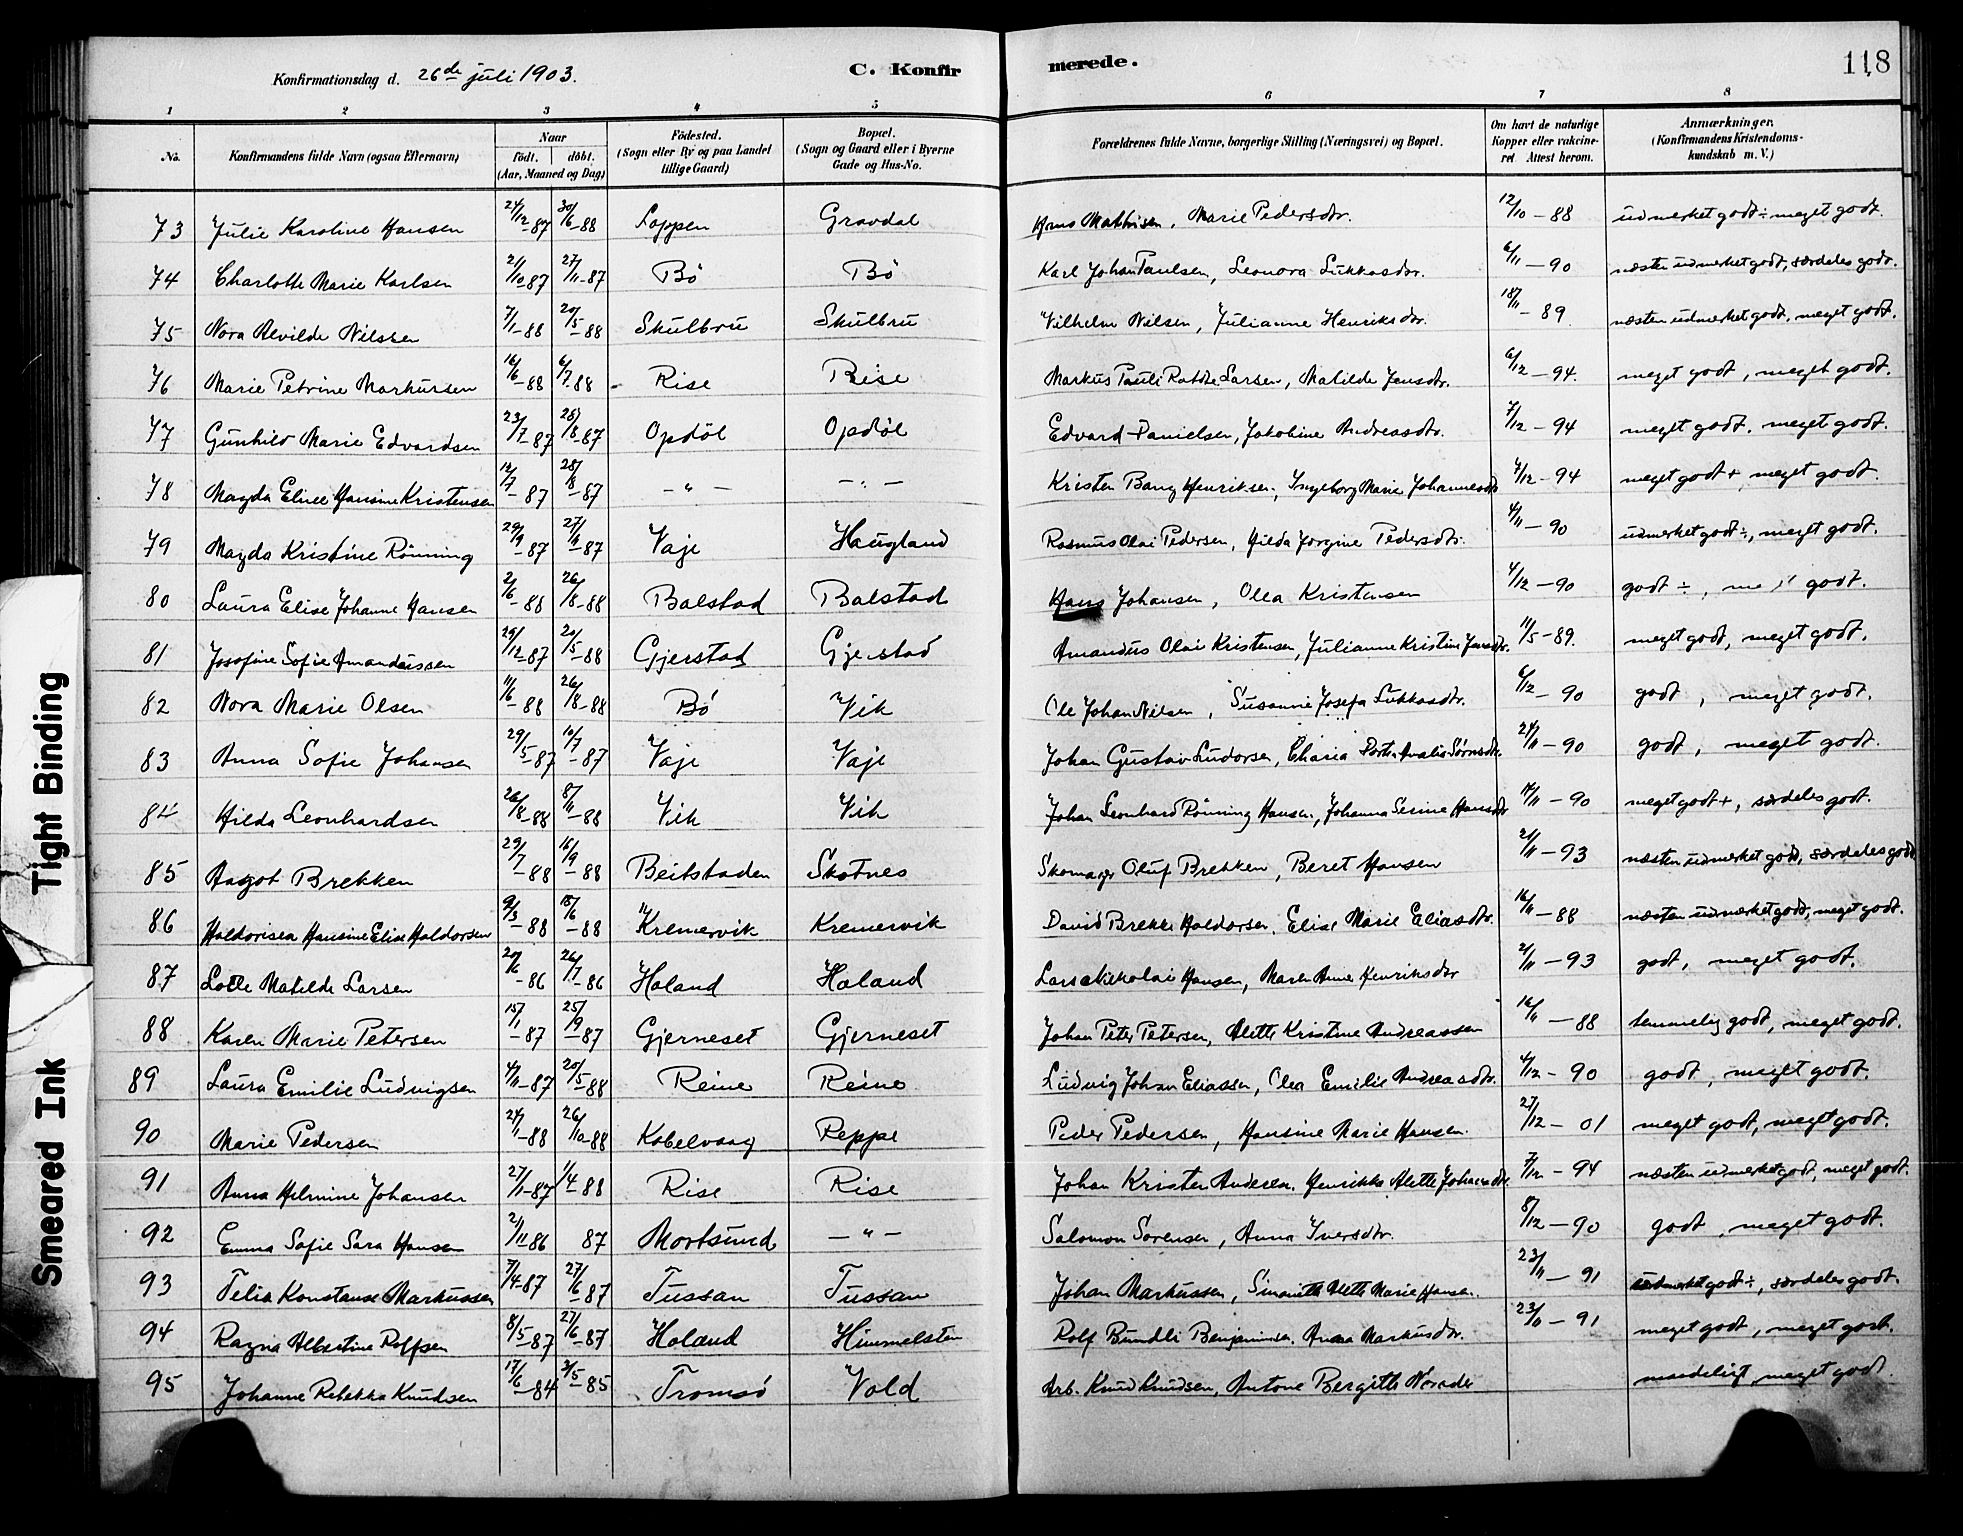 Konfirmationsdag d. 26de juli 1903. C. Konfir merede. 118
1 2 3 4 5 6 7 8
No. Konfirmandens fulde Navn (ogsaa Efternavn) Naar født. døbt. (Aar, Maaned og Dag) Födested. (Sogn eller By og paa Landet tillige Gaard) Bopæl. (Sogn og Gaard eller i Byerne Gade og Hus-No. Forældrenes fulde Navne, borgerlige Stilling (Næringsvei) og Bopæl. Om havt de naturlige Kopper eller vakcineret Attest herom. Anmærkninger. (Konfirmandens Kristendomskundskab m. V.)
73 Julie Karoline Hansen 24/12-87 30/6-88 Loppen Gravdal Hans Mathisen, Marie Pedersdtr. 12/10-88 udmerket godt÷ meget godt.
74 Charlotte Marie Karlsen 21/10 87 27/11-87 Bö Bö Karl Johan Paulsen, Leonora Lukkasdtr. 6/11-90 næsten udmerket godt, særdeles godt.
75 Nora Alvilde Nilssen 7/1-88 20/5-88 Skulbru Skulbru Vilhelm Nilsen, Julianne Henriksdtr. 18/11-89 næsten udmerket godt, meget godt.
76 Marie Petrine Markussen 16/6-88 6/7-88 Rise Rise Markus Pauli Larsen, Matilde Jensdtr. 6/12-94. meget godt, meget godt.
77 Gunhild Marie Edvardsen 23/7-87 28/8-87 Opdöl Opdöl Edvard Danielsen, Jakobine Andreasdtr. 7/12-94 meget godt, meget godt.
78 Magda Elise Hansine Kristensen 12/7-87 28/8-87 - " - - " - Kristen Bang Henriksen, Ingeborg Marie Johannesdtr 7/12-94 meget godt+, meget godt.
79 Magda Kristine Rönning 29/9-87 27/11-87 Vaje Haugland Rasmus Olai Pedersen, Hilda Jorgine Pedersdtr. 4/11-90 udmerket godt÷, meget godt.
80 Laura Elise Johanne Hansen 2/6-88 26/8-88 Balstad Balstad Hans Johansen, Olea Kristensen 4/12-90 godt ÷, godt.
81 Josefine Sofie Amandussen 29/12-87 20/5-88 Gjerstad Gjerstad Amandus Olai Kristensen, Julianne Kristine Jensdtr. 11/5-89. meget godt, meget godt.
82 Nora Marie Olsen 11/6-88 26/8-88 Bö Vik Ole Johan Nilsen, Susanne Josefa Lukkasdtr. 6/12-90 godt, meget godt.
83 Anna Sofie Johansen 29/5-87 10/7-87 Vaje Vaje Johan Gustav 24/11-90 godt, meget godt.
84 Hilda Leonhardsen 26/8-88 8/11-88 Vik Vik Johan Leonhard Rönning Hansen, Johanna Serine Hansdtr 14/11-90 meget godt+, særdeles godt.
85 Aagot Brekken 29/7-88 16/9-88 Beitstaden Skotnes Skomager Oluf Brekken, Beret Hansen 21/11-93 næsten udmerket godt, særdeles godt
86 Haldorisea Hansine Elise Haldorsen 9/3-88 18/6-88 Kremervik Kremervik David Brekke Haldorsen, Elise Marie Eliasdtr. 16/11-88 næsten udmerket godt, meget godt.
87 Lotte Matilde Larsen 20/6-86 26/7-86 Holand Holand Lars Nikolai Hansen, Maren Anne Henriksdtr 2/11-93 godt, meget godt.
88 Karen Marie Petersen 15/1-87 25/9-87 Gjerneset Gjerneset Johan Peter Petersen, Alette Kristine Andreassen 16/11-88 temmelig godt, meget godt.
89 Laura Emilie Ludvigsen 4/11-87 20/5-88 Reine Reine Ludvig Johan Eliassen, Olea Emilie Andreasdtr. 4/12-90 godt, meget godt.
90 Marie Pedersen 24/1-88 26/10-88 Kabelvaag Reppe Peder Pedersen, Hansine Marie Hansen. 27/12-01 meget godt, meget godt.
91 Anna Helmine Johansen 27/11-87 1/4-88 Rise Rise Johan Kristen Andersen, Henrikke Alette Johansdtr. 7/12-94 næsten udmerket godt, meget godt.
92 Emma Sofie Sara Hansen 2/11 86 87 Mortsund - " - Salomon Sörensen, Anna Iversdtr. 8/12-90 godt, meget godt.
93 Telia Konstanse Markussen 7/4-87 27/6-87 Tussan Tussan Johan Markussen, Alette Marie Hansen. 23/11-91 udmerket godt÷, særdeles godt.
94 Ragna Albertine Rolfsen 8/5-87 27/6-87 Holand Himmelsten Rolf Bundli Benjaminsen, Anna Markusdtr. 23/11-91 meget godt, meget godt.
95 Johanne Rebekka Knudsen 17/6-84 3/5-85 Tromsö Vold Arb. Knud Knudsen, Antone Bergitte maadeligt, meget godt.
Tight Binding
Smeared Ink